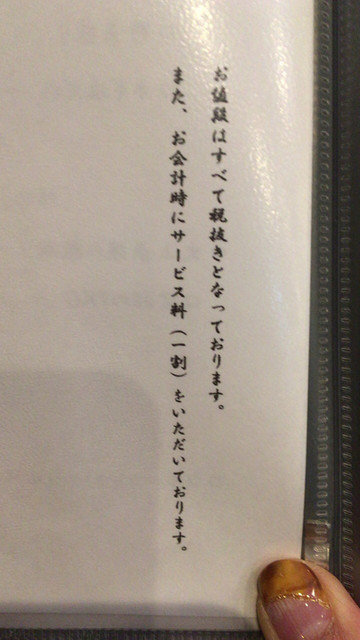 お値段はすべて税抜きとなっております。
また、お会計時にサービス料(一割)をいただいております。